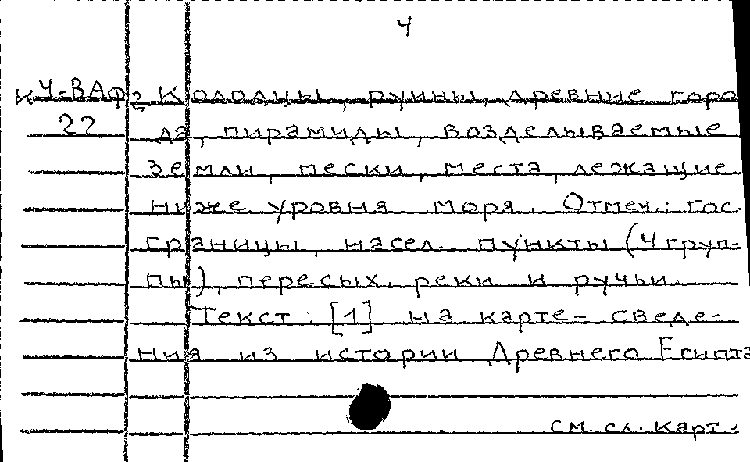 4
К4-ВАф2 Колодцы, руины, древние горо
22 да, пирамиды, возделываемые
земли, пески, места, лежащие
ниже уровня моря. Отмеч.: гос.
границы, насел. пункты (4 груп-
пы), пересых. реки и ручьи.
Текст: [1] на карте - сведе-
ния из истории Древнего Египта
см. сл. карт.